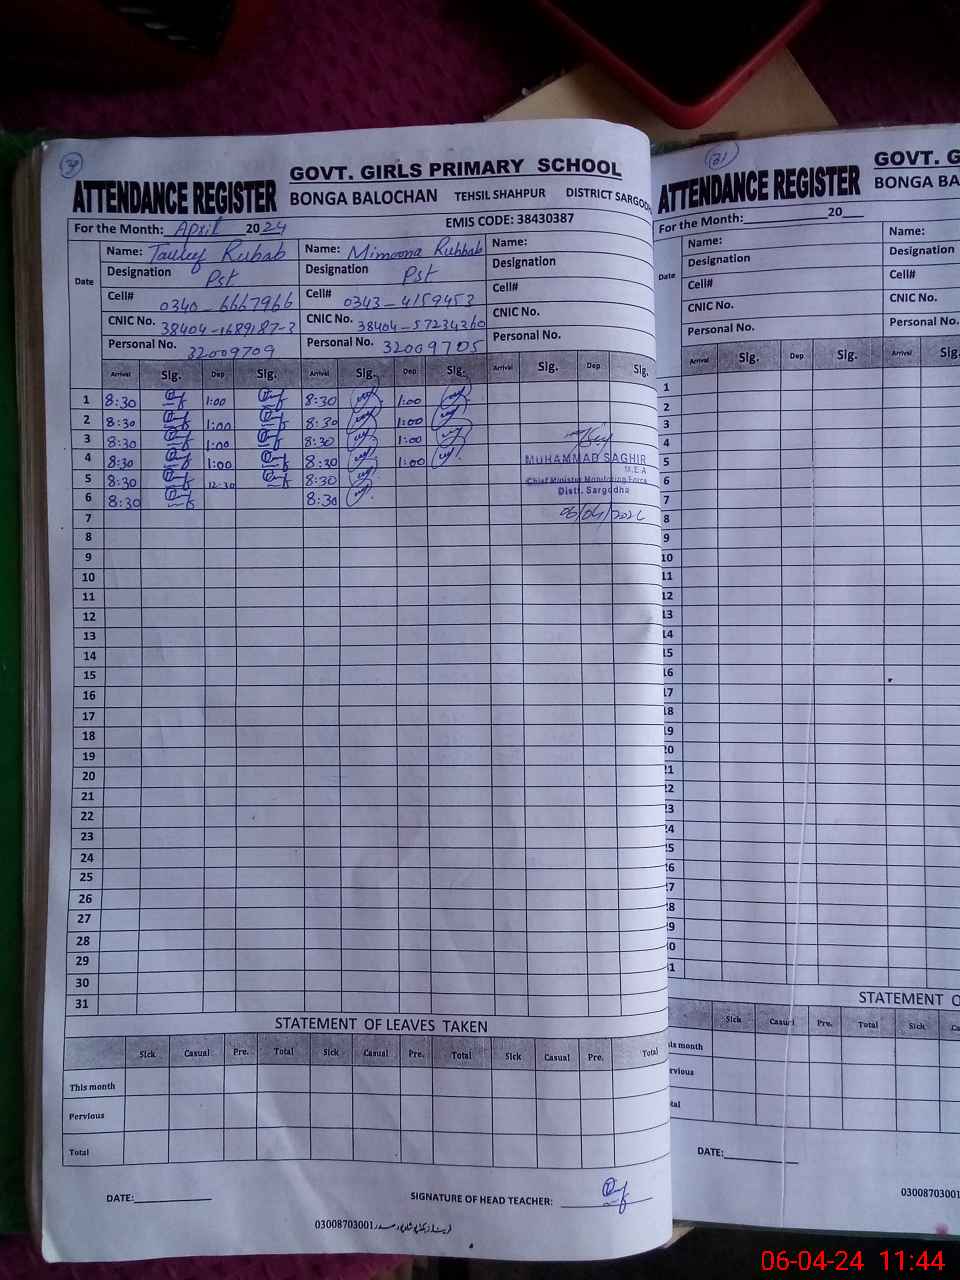 30
GOVT. GIRLS PRIMARY SCHOOL
ATTENDANCE REGISTER BONGA BALOCHAN TEHSIL SHAHPUR DISTRICT SARGODHA
For the Month: April 2024 EMIS CODE: 38430387
Date Name: Rubab Name: Mimoona Rubbab Name:
Designation Pst Designation Pst Designation
Cell# 0340-6667966 Cell# 0343-4159453 Cell#
CNIC No. 38404-1689187-2 CNIC No. 38404-57234360 CNIC No.
Personal No. 32009709 Personal No. 32009705 Personal No.
Arrival Sig. Dep Sig. Arrival Sig. Dep Sig. Arrival Sig. Dep Sig.
1 8:30 1:00 8:30 1:00
2 8:30 1:00 8:30 1:00
3 8:30 1:00 8:30 1:00
4 8:30 1:00 8:30 1:00
5 8:30 12:30 8:30
6 8:30 8:30
7
8
9
10
11
12
13
14
15
16
17
18
19
20
21
22
23
24
25
26
27
28
29
30
31
MUHAMMAD SAGHIR
M.E.A
Chief Minister Monitoring Force
Distt. Sargodha
06/04/2024
STATEMENT OF LEAVES TAKEN
Sick Casual Pre. Total Sick Casual Pre. Total Sick Casual Pre. Total
This month
Pervious
Total
DATE: SIGNATURE OF HEAD TEACHER:
03008703001
31
GOVT. G
ATTENDANCE REGISTER BONGA BA
For the Month: 20
Date Name: Name:
Designation Designation
Cell# Cell#
CNIC No. CNIC No.
Personal No. Personal No.
Arrival Sig. Dep Sig. Arrival Sig.
1
2
3
4
5
6
7
8
9
10
11
12
13
14
15
16
17
18
19
20
21
22
23
24
25
26
27
28
29
30
31
STATEMENT O
Sick Casual Pre. Total Sick Ca
is month
rvious
tal
DATE:
0300870300
06-04-24 11:44